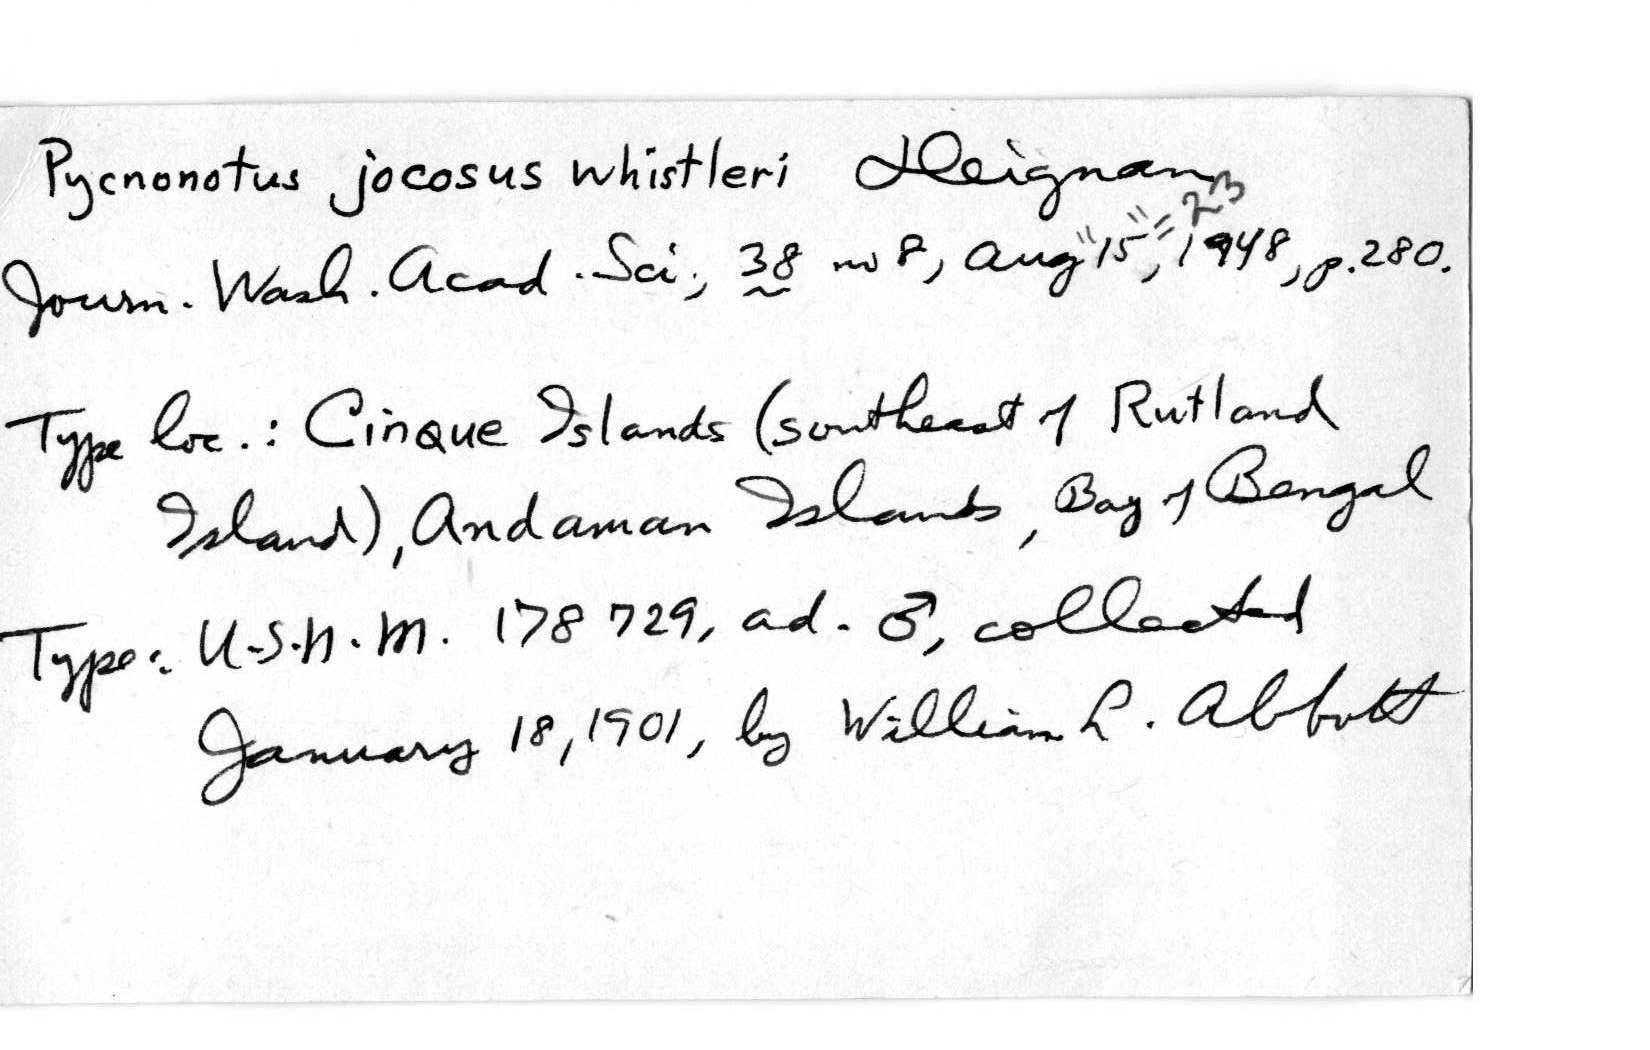 Pycnonotus jocosus whistleri Deignan
Journ. Wash. Acad. Sci., 38 no 8, Aug "15"=23, 1948, p.280.
Type loc.: Cinque Islands (southeast of Rutland
Island), Andaman Islands, Bay of Bengal
Type: U.S.N.M. 178729, ad. ♂, collected
January 18, 1901, by William L. Abbott